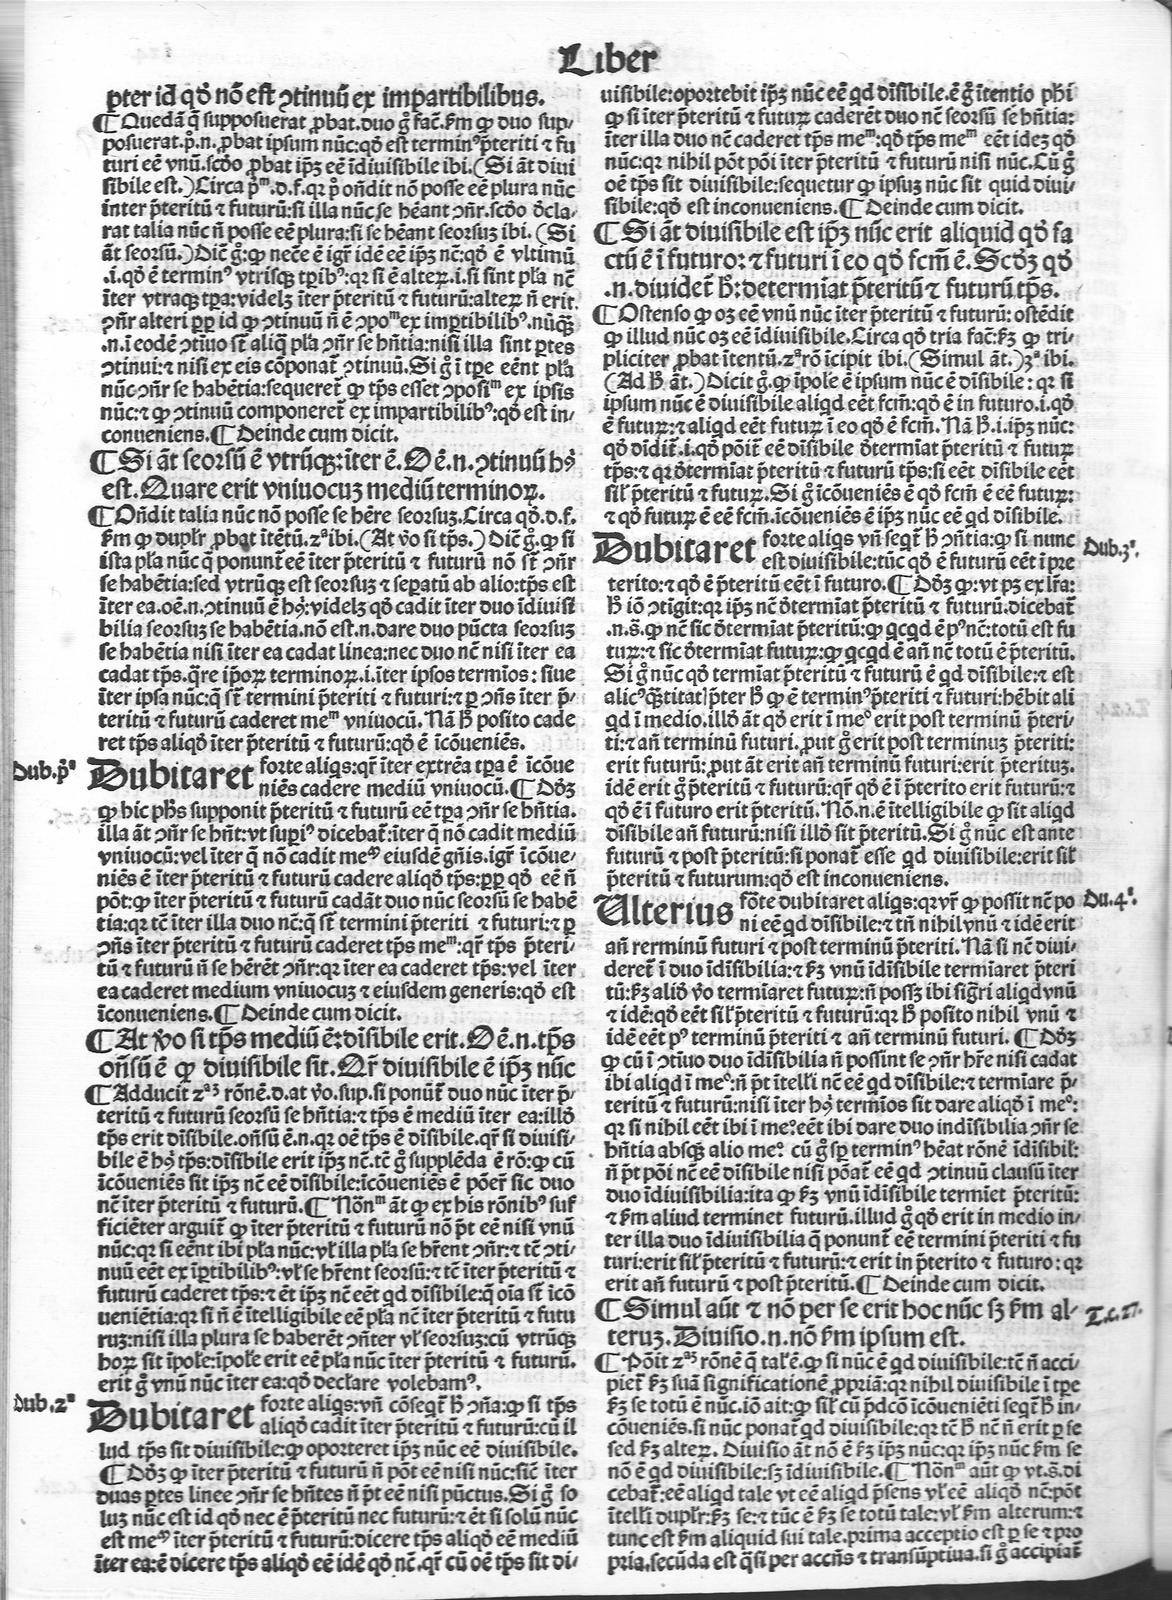 Liber
pter id qđ nō est ↄtinuū ex impartibilibus.
¶ Quedā q̄ supposuerat ꝓbat. duo g̊ fac̄. ꝑm ꝙ duo sup-
posuerat. p̊. n. ꝓbat ipsum nūc: qđ est terminꝰ p̄teriti ⁊ fu
turi eē vnū. scđo ꝓbat ipꝫ eē īdiuisibile ibi. (Si āt diui
sibile est.) Circa pᵐ. d. f. qꝛ p̊ oñdit nō posse eē plura nūc
inter p̄teritū ⁊ futurū: si illa nūc se hēant ↄñr. scđo đcla-
rat talia nūc ñ posse eē plura: si se hēant seorsuꝫ ibi. (Si
āt seorsū.) Dic̄ g̊: ꝙ necē ē igr̄ idē eē ipꝫ nc̄: qđ ē vltimū
.i. qđ ē terminꝰ vtrisqꝫ tꝑibꝰ: qꝛ si ē alteꝝ. i. si sint pl̄a nc̄
īter vtraqꝫ tꝑa: videlꝫ īter p̄teritū ⁊ futurū: alteꝝ ñ erit.
ↄñr alteri ꝓp̄ id ꝙ ↄtinuū ñ ē ↄpoᵐ ex imꝑtibilibꝰ. nūq̄ꝫ
.n. ī eodē ↄtīuo st̄ aliq̄ pl̄a ↄñr se hñtia: nisi illa sint ꝑtes
ↄtinui: ⁊ nisi ex eis cōponat̄ ↄtinuū. Si g̊ ī tꝑe eēnt pl̄a
nūc ↄñr se habētia: sequeret̄ ꝙ tp̄s esset ↄposiᵐ ex ipsis
nūc: ⁊ ꝙ ↄtinuū componeret̄ ex impartibilibꝰ: qđ est in-
conueniens. ¶ Deinde cum dicit.
¶ Si āt seorsū ē vtrūqꝫ: īter ē. Oē. n. ↄtinuū hꝰ
est. Quare erit vniuocuꝫ mediū terminoꝝ.
¶ Oñdit talia nūc nō posse se hēre seorsuꝫ. Circa qđ. d. f.
ꝑm ꝙ duplr̄ ꝓbat ītētū. 2ᵃ ibi. (At v̊o si tp̄s.) Dic̄ g̊. ꝙ si
ista pl̄a nūc q̄ ponunt̄ eē īter p̄teritū ⁊ futurū nō st̄ ↄñr
se habētia: sed vtrūqꝫ est seorsuꝫ ⁊ seꝑatū ab alio: tp̄s est
īter ea. oē. n. ↄtinuū ē hꝰ: videlꝫ qđ cadit īter duo īdiuisi
bilia seorsuꝫ se habētia. nō est. n. dare duo pūcta seorsuꝫ
se habētia nisi īter ea cadat linea: nec duo nc̄ nisi īter ea
cadat tp̄s. q̄re ipoꝝ terminoꝝ. i. īter ipsos termīos: siue
īter ipsa nūc: q̄ st̄ termini p̄teriti ⁊ futuri: ⁊ ꝑ ↄñs īter p̄-
teritū ⁊ futurū caderet meᵐ vniuocū. Nā ħ posito cade
ret tp̄s aliqđ īter p̄teritū ⁊ futurū: qđ ē īcōueniēs.
Dub. pᵃ
Dubitaret forte aliqs: qr̄ īter extrēa tꝑa ē īcōue
niēs cadere mediū vniuocū. ¶ Dōꝫ
ꝙ hic ph̄s supponit p̄teritū ⁊ futurū eē tꝑa ↄñr se hñtia.
illa āt ↄñr se hñt: vt supiꝰ dicebat̄: īter q̄ nō cadit mediū
vniuocū: vel īter q̄ nō cadit meᵐ eiusdē gñis. igr̄ īcōue-
niēs ē īter p̄teritū ⁊ futurū cadere aliqđ tp̄s: ꝓp̄ qđ eē ñ
pōt: ꝙ īter p̄teritū ⁊ futurū cadāt duo nūc seorsū se habē
tia: qꝛ tc̄ īter illa duo nc̄: q̄ st̄ termini p̄teriti ⁊ futuri: ⁊ ꝑ
ↄñs īter p̄teritū ⁊ futurū caderet tp̄s meᵐ: qr̄ tp̄s p̄teri-
tū ⁊ futurū ñ se hērēt ↄñr: qꝛ īter ea caderet tp̄s: vel īter
ea caderet medium vniuocuꝫ ⁊ eiusdem generis: qđ est
īconueniens. ¶ Deinde cum dicit.
¶ At v̊o si tp̄s mediū ē: dīsibile erit. Oē. n. tp̄s
oñsū ē ꝙ diuisibile sit. Qr̄ diuisibile ē ipꝫ nūc
¶ Adducit 2ᵃꝫ rōnē. d. at v̊o. sup. si ponūt̄ duo nūc īter p̄-
teritū ⁊ futurū seorsū se hñtia: ⁊ tp̄s ē mediū īter ea: illđ
tp̄s erit dīsibile. oñsū ē. n. qꝛ oē tp̄s ē dīsibile. qr̄ si diuisi-
bile ē hꝰ tp̄s: dīsibile erit ipꝫ nc̄. tc̄ g̊ supplēda ē rō: ꝙ cū
īcōueniēs sit ipꝫ nc̄ eē dīsibile: īcōueniēs ē pōer̄ sic duo
nc̄ īter p̄teritū ⁊ futurū. ¶ Nōnᵐ āt ꝙ ex his rōnibꝰ suf
ficiēter arguit̄ ꝙ īter p̄teritū ⁊ futurū nō p̄t eē nisi vnū
nūc: qꝛ si eēnt ibi pl̄a nūc: vl̄ illa pl̄a se hr̄ent ↄñr: ⁊ tc̄ ↄti-
nuū eēt ex īꝑtibilibꝰ: vl̄ se hr̄ent seorsū: ⁊ tc̄ īter p̄teritū ⁊
futurū caderet tp̄s: ⁊ ēt ipꝫ nc̄ eēt qd dīsibile: q̄ oīa st̄ īcō
ueniētia: qꝛ si ñ ē ītelligibile eē pl̄a nc̄ īter p̄teritū ⁊ futu
ruꝫ: nisi illa plura se haberēt ↄñter vl̄ seorsuꝫ: cū vtrūqꝫ
hoꝝ sit īpole: īpole erit eē pl̄a nūc īter p̄teritū ⁊ futurū.
erit g̊ vnū nūc īter ea: qđ declare volebamꝰ.
Dub. 2ᵃ
Dubitaret forte aliqs: vñ cōseqt̄ ħ ↄña: ꝙ si tp̄s
aliqđ cadit īter p̄teritū ⁊ futurū: cū il
lud tp̄s sit diuisibile: ꝙ oporteret ipꝫ nūc eē diuisibile.
¶ Dōꝫ ꝙ īter p̄teritū ⁊ futurū ñ pōt eē nisi nūc: sic̄ īter
duas ꝑtes linee ↄñr se hñtes ñ p̄t eē nisi pūctus. Si g̊ so
luꝫ nūc est id qđ nec ē p̄teritū nec futurū: ⁊ ēt si solū nūc
est meᵐ īter p̄teritū ⁊ futurū: dicere tp̄s aliqđ eē mediū
īter ea: ē dicere tp̄s aliqđ eē idē qđ nc̄. qr̄ cū oē tp̄s sit di-
uisibile: oportebit ipꝫ nūc eē qd dīsibile. ē g̊ ītentio ph̄i
ꝙ si īter p̄teritū ⁊ futuꝝ caderēt duo nc̄ seorsū se hñtia:
īter illa duo nc̄ caderet tp̄s meᵐ: qđ tp̄s meᵐ eēt ideꝫ qđ
nūc: qꝛ nihil pōt pōi īter p̄teritū ⁊ futurū nisi nūc. Cū g̊
oē tp̄s sit diuisibile: sequetur ꝙ ipsuꝫ nūc sit quid diui-
sibile: qđ est inconueniens. ¶ Deinde cum dicit.
¶ Si āt diuisibile est ipꝫ nūc erit aliquid qđ fa
ctū ē ī futuro: ⁊ futuri ī eo qđ fcm̄ ē. Scđꝫ qđ
.n. diuidet̄ ħ: determīat p̄teritū ⁊ futurū tp̄s.
¶ Ostenso ꝙ oꝫ eē vnū nūc īter p̄teritū ⁊ futurū: ostēdit
ꝙ illud nūc oꝫ eē īdiuisibile. Circa qđ tria fac̄: ẜꝫ ꝙ tri-
pliciter ꝓbat ītentū. 2ᵃ rō īcipit ibi. (Simul āt.) 3ᵃ ibi.
(Ad ħ āt.) Dicit g̊. ꝙ īpole ē ipsum nūc ē dīsibile: qꝛ si
ipsum nūc ē diuisibile aliqd eēt fcm̄: qđ ē in futuro. i. qđ
ē futuꝝ: ⁊ aliqd eēt futuꝝ ī eo qđ ē fcm̄. Nā ħ. i. ipꝫ nūc:
qđ didit̄. i. qđ pōit̄ eē dīsibile đtermīat p̄teritū ⁊ futuꝝ
tp̄s: ⁊ qꝛ đtermīat p̄teritū ⁊ futurū tp̄s: si eēt dīsibile eēt
sil̄ p̄teritū ⁊ futuꝝ. Si g̊ īcōueniēs ē qđ fcm̄ ē eē futuꝝ:
⁊ qđ futuꝝ ē eē fcm̄. īcōueniēs ē ipꝫ nūc eē qd dīsibile.
Dubitaret forte aliqs vñ seqt̄ ħ ↄñtia: ꝙ si nunc
est diuisibile: tūc qđ ē futurū eēt ī pre
Dub. 3ᵃ.
terito: ⁊ qđ ē p̄teritū eēt ī futuro. ¶ Dōꝫ ꝙ: vt pꝫ ex lr̄a:
ħ iō ↄtigit: qꝛ ipꝫ nc̄ đtermīat p̄teritū ⁊ futurū. dicebat̄
.n. s̄. ꝙ nc̄ sic đtermīat p̄teritū: ꝙ qcqd ē pꝰ nc̄: totū est fu
tuꝝ: ⁊ sic đtermīat futuꝝ: ꝙ qcqd ē añ nc̄ totū ē p̄teritū.
Si g̊ nūc qđ termīat p̄teritū ⁊ futurū ē qd dīsibile: ⁊ est
alicꝰ q̄titat̄ p̄ter ħ ꝙ ē terminꝰ p̄teriti ⁊ futuri: hēbit ali
qd ī medio. illđ āt qđ erit ī me° erit post terminū p̄teri-
ti: ⁊ añ terminū futuri. ꝓut g̊ erit post terminuꝫ p̄teriti:
erit futurū: ꝓut āt erit añ terminū futuri: erit p̄terituꝫ.
idē erit g̊ p̄teritū ⁊ futurū: qr̄ qđ ē ī p̄terito erit futurū: ⁊
qđ ē ī futuro erit p̄teritū. Nō. n. ē ītelligibile ꝙ sit aliqd
dīsibile añ futurū: nisi illđ sit p̄teritū. Si g̊ nūc est ante
futurū ⁊ post p̄teritū: si ponat̄ esse qd diuisibile: erit sil̄
p̄teritū ⁊ futurum: qđ est inconueniens.
Ulterius fōte dubitaret aliqs: qꝛ vr̄ ꝙ possīt nc̄ po
ni eē qd dīsibile: ⁊ tñ nihil vnū ⁊ idē erit
Du. 4ᵃ.
añ rerminū futuri ⁊ post terminū p̄teriti. Nā si nc̄ diui-
deret̄ ī duo īdīsibilia: ⁊ ẜꝫ vnū īdīsibile termīaret p̄teri
tū: ẜꝫ aliđ v̊o termīaret futuꝝ: ñ possꝫ ibi sigr̄i aliqd vnū
⁊ idē: qđ eēt sil̄ p̄teritū ⁊ futurū: qꝛ ħ posito nihil vnū ⁊
idē eēt pꝰ terminū p̄teriti ⁊ añ terminū futuri. ¶ Dōꝫ
ꝙ cū ī ↄtīuo duo īdīsibilia ñ possint se ↄñr hr̄e nisi cadat
ibi aliqd ī me°: ñ p̄t ītell̄i nc̄ eē qd dīsibile: ⁊ termīare p̄-
teritū ⁊ futurū: nisi īter hꝰ termīos sit dare aliqđ ī me°:
qꝛ si nihil eēt ibi ī me°: eēt ibi dare duo indīsibilia ↄñr se
hñtia absqꝫ alio me°: cū g̊ sꝑ terminꝰ hēat rōnē īdīsibil̄:
ñ p̄t pōi nc̄ eē dīsibile nisi pōat̄ eē qd ↄtinuū clausū īter
duo īdiuisibilia: ita ꝙ ẜꝫ vnū īdīsibile termīet p̄teritū:
⁊ ẜm aliud terminet futurū. illud g̊ qđ erit in medio in-
ter illa duo īdiuisibilia q̄ ponunt̄ eē termini p̄teriti ⁊ fu
turi: erit sil̄ p̄teritū ⁊ futurū: ⁊ erit in p̄terito ⁊ futuro: qꝛ
erit añ futurū ⁊ post p̄teritū. ¶ Deinde cum dicit.
¶ Simul aūt ⁊ nō per se erit hoc nūc sꝫ ẜm al-
teruꝫ. Diuisio. n. nō ẜm ipsum est.
T. c. 27.
¶ Pōit 2ᵃꝫ rōnē q̄ tal̄ ē. ꝙ si nūc ē qd diuisibile: tc̄ ñ acci-
piet̄ ẜꝫ suā significationē ꝓpriā: qꝛ nihil diuisibile ī tꝑe
ẜꝫ se totū ē nūc. iō ait: ꝙ sil̄ cū p̄dcō īcōueniēti seqt̄ ħ in-
cōueniēs. si nūc ponat̄ qd diuisibile: qꝛ tc̄ ħ nc̄ ñ erit ꝑ se
sed ẜꝫ alteꝝ. Diuisio āt nō ē ẜꝫ ipꝫ nūc: qꝛ ipꝫ nūc ẜm se
nō ē qd diuisibile: sꝫ īdiuisibile. ¶ Nōnᵐ aūt ꝙ vt. s̄. di
cebat̄: eē aliqd tale vt eē aliqd p̄sens vl̄ eē aliqđ nc̄: pōt
ītell̄i duplr̄: ẜꝫ se: ⁊ tūc ē ẜꝫ se totū tale: vl̄ ẜm alterum: ⁊
tunc est ẜm aliquid sui tale. prima acceptio est ꝑ se ⁊ pro
pria. secūda est q̄si per accñs ⁊ transūptiua. si g̊ accipiat̄